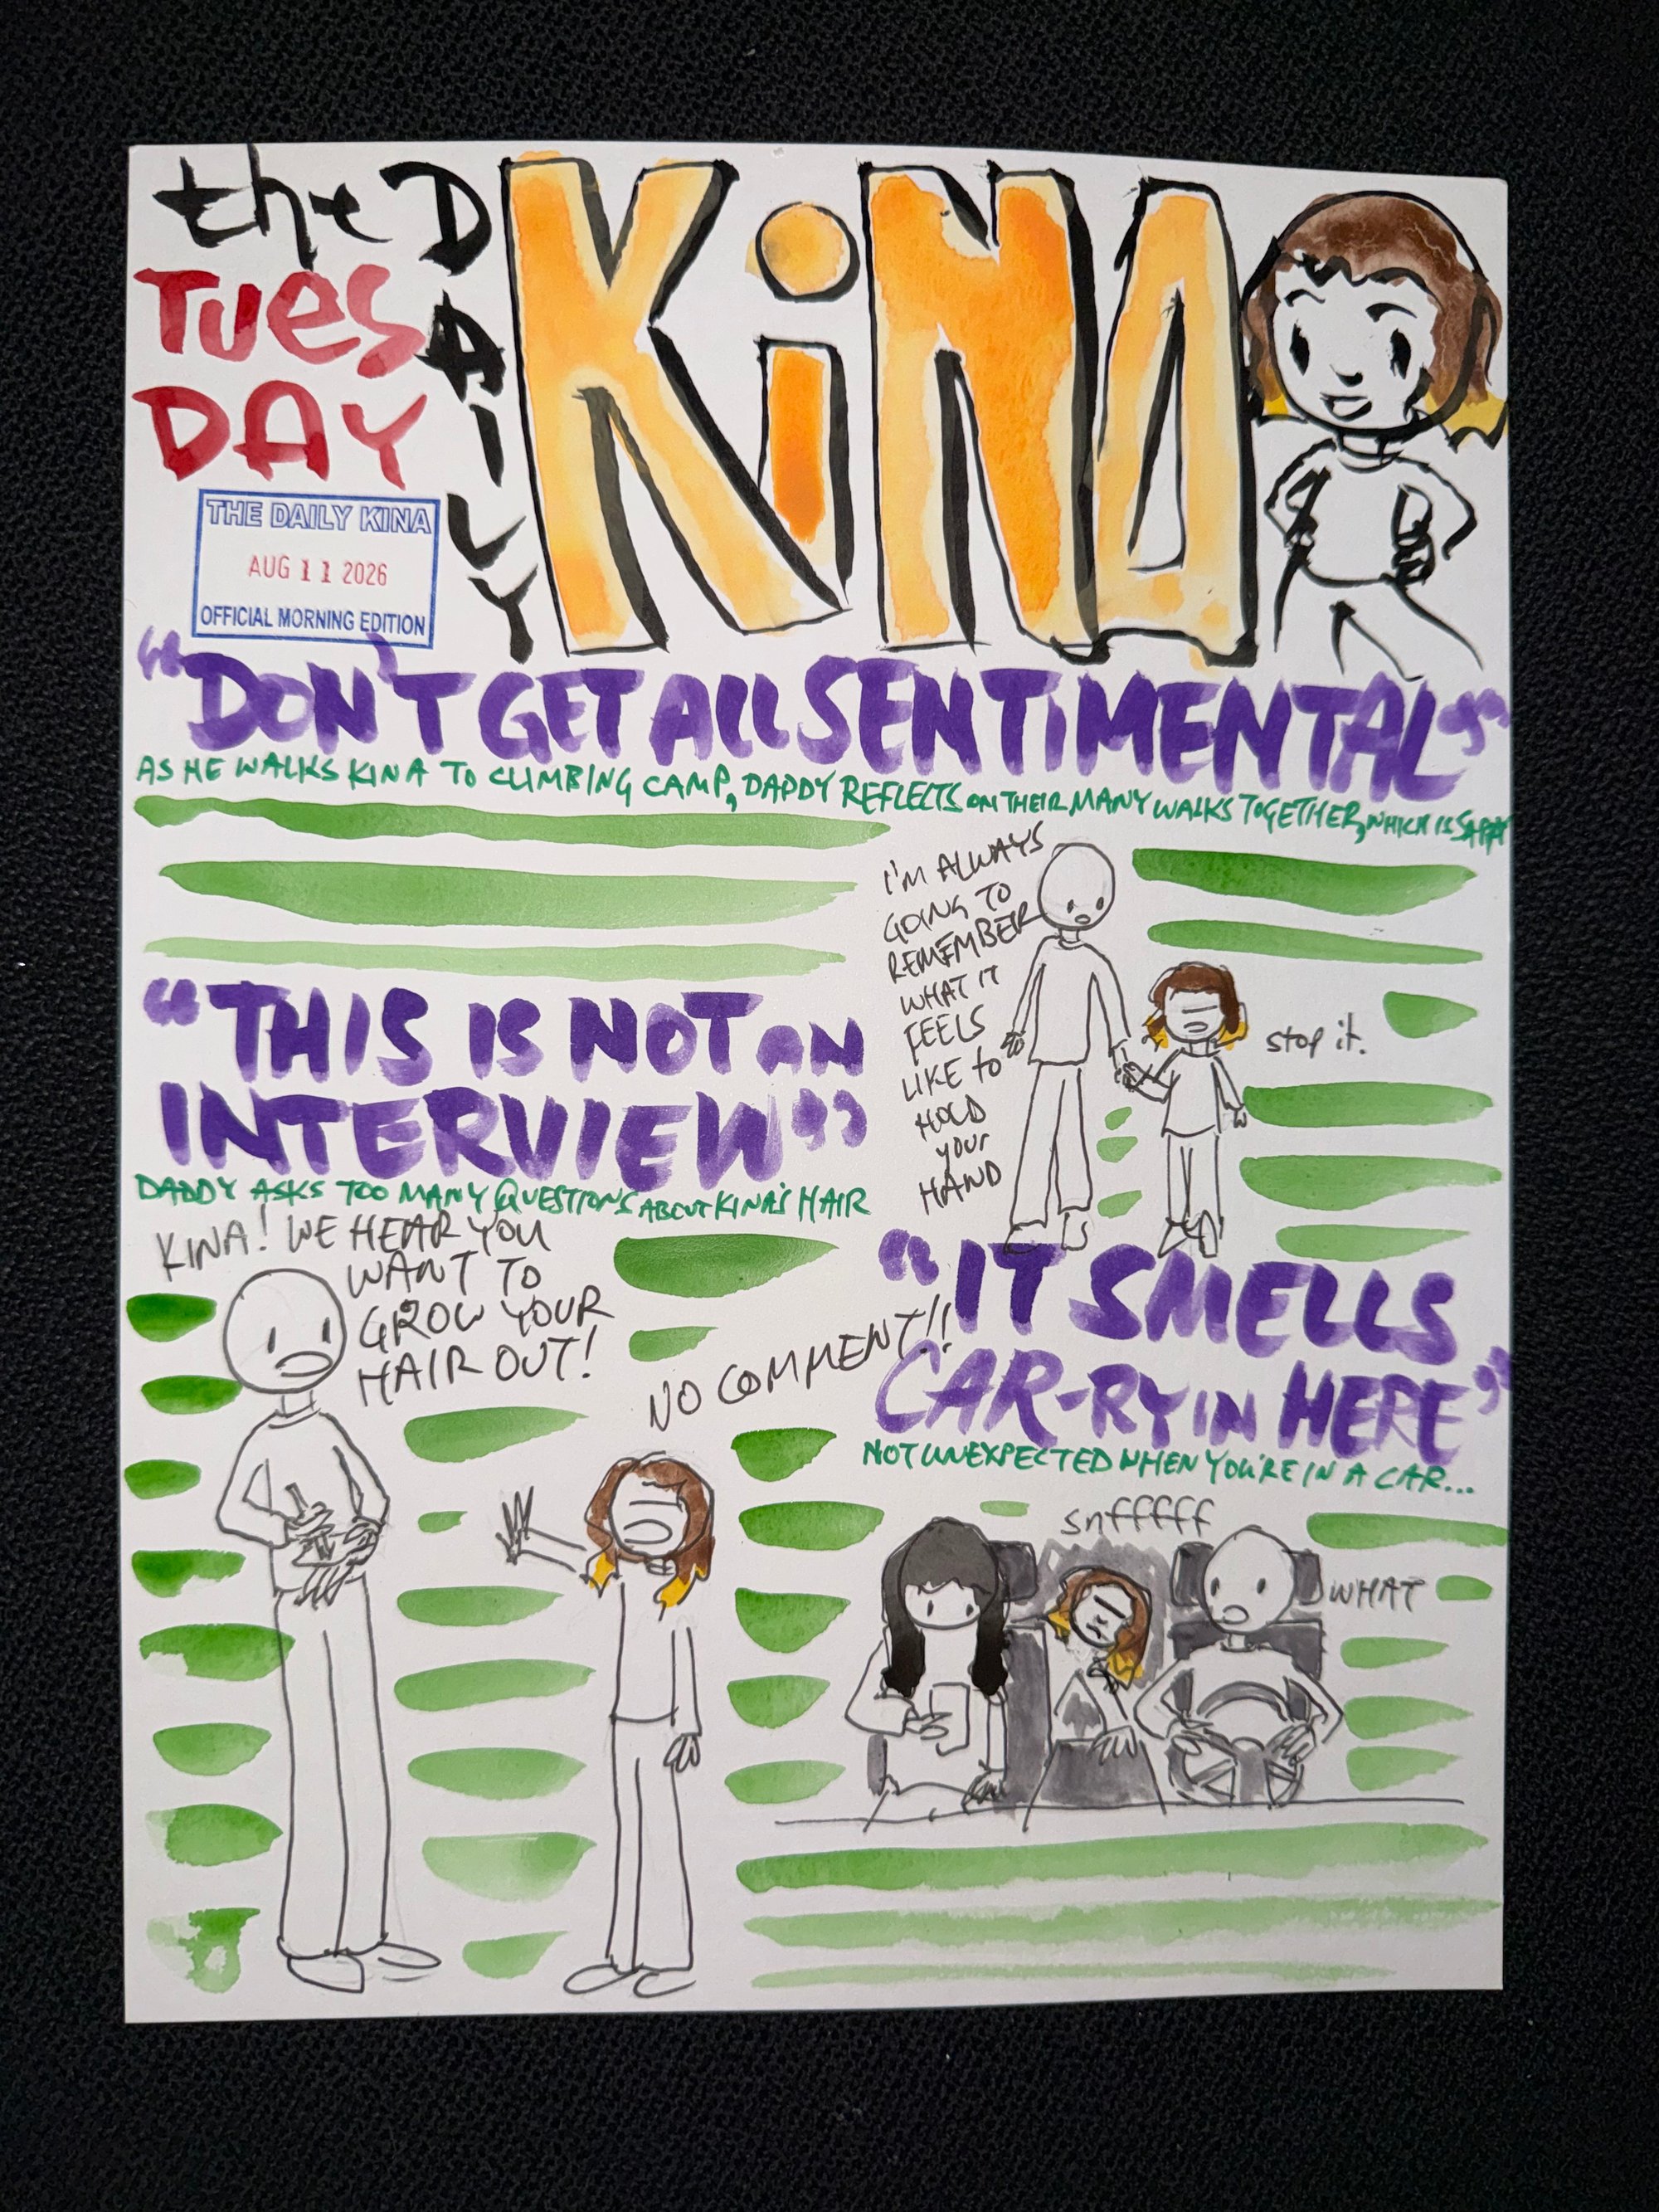 the DAILY KiNA
TUES
DAY
THE DAILY KINA
AUG 11 2026
OFFICIAL MORNING EDITION
"DON'T GET ALL SENTIMENTAL"
AS HE WALKS KINA TO CLIMBING CAMP, DADDY REFLECTS ON THEIR MANY WALKS TOGETHER, WHICH IS SAPPY
I'M ALWAYS
GOING TO
REMEMBER
WHAT IT
FEELS
LIKE to
HOLD
your
HAND
stop it.
"THIS IS NOT AN
INTERVIEW"
DADDY ASKS TOO MANY QUESTIONS ABOUT KINA'S HAIR
KINA! WE HEAR YOU
WANT TO
GROW YOUR
HAIR OUT!
NO COMMENT!!
"IT SMELLS
CAR-RY IN HERE"
NOT UNEXPECTED WHEN YOU'RE IN A CAR...
snffffff
WHAT